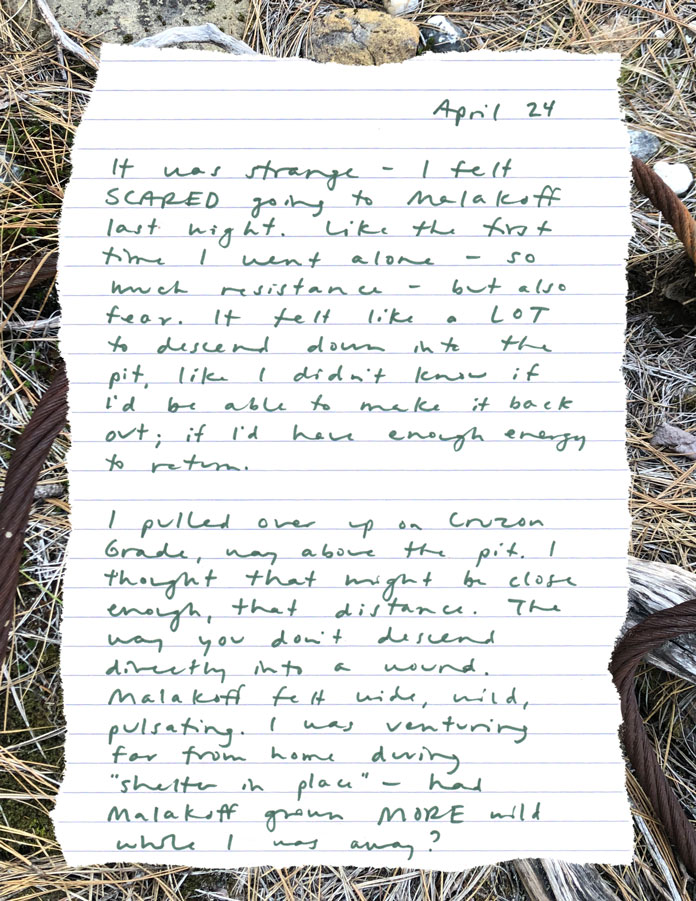 April 24
It was strange - I felt
SCARED going to Malakoff
last night. Like the first
time I went alone - so
much resistance - but also
fear. It felt like a LOT
to descend down into the
pit, like I didn't know if
I'd be able to make it back
out; if I'd have enough energy
to return.
I pulled over up on Cruzon
Grade, way above the pit. I
thought that might be close
enough, that distance. The
way you don't descend
directly into a wound.
Malakoff felt wide, wild,
pulsating. I was venturing
far from home during
"shelter in place" - had
Malakoff grown MORE wild
while I was away?